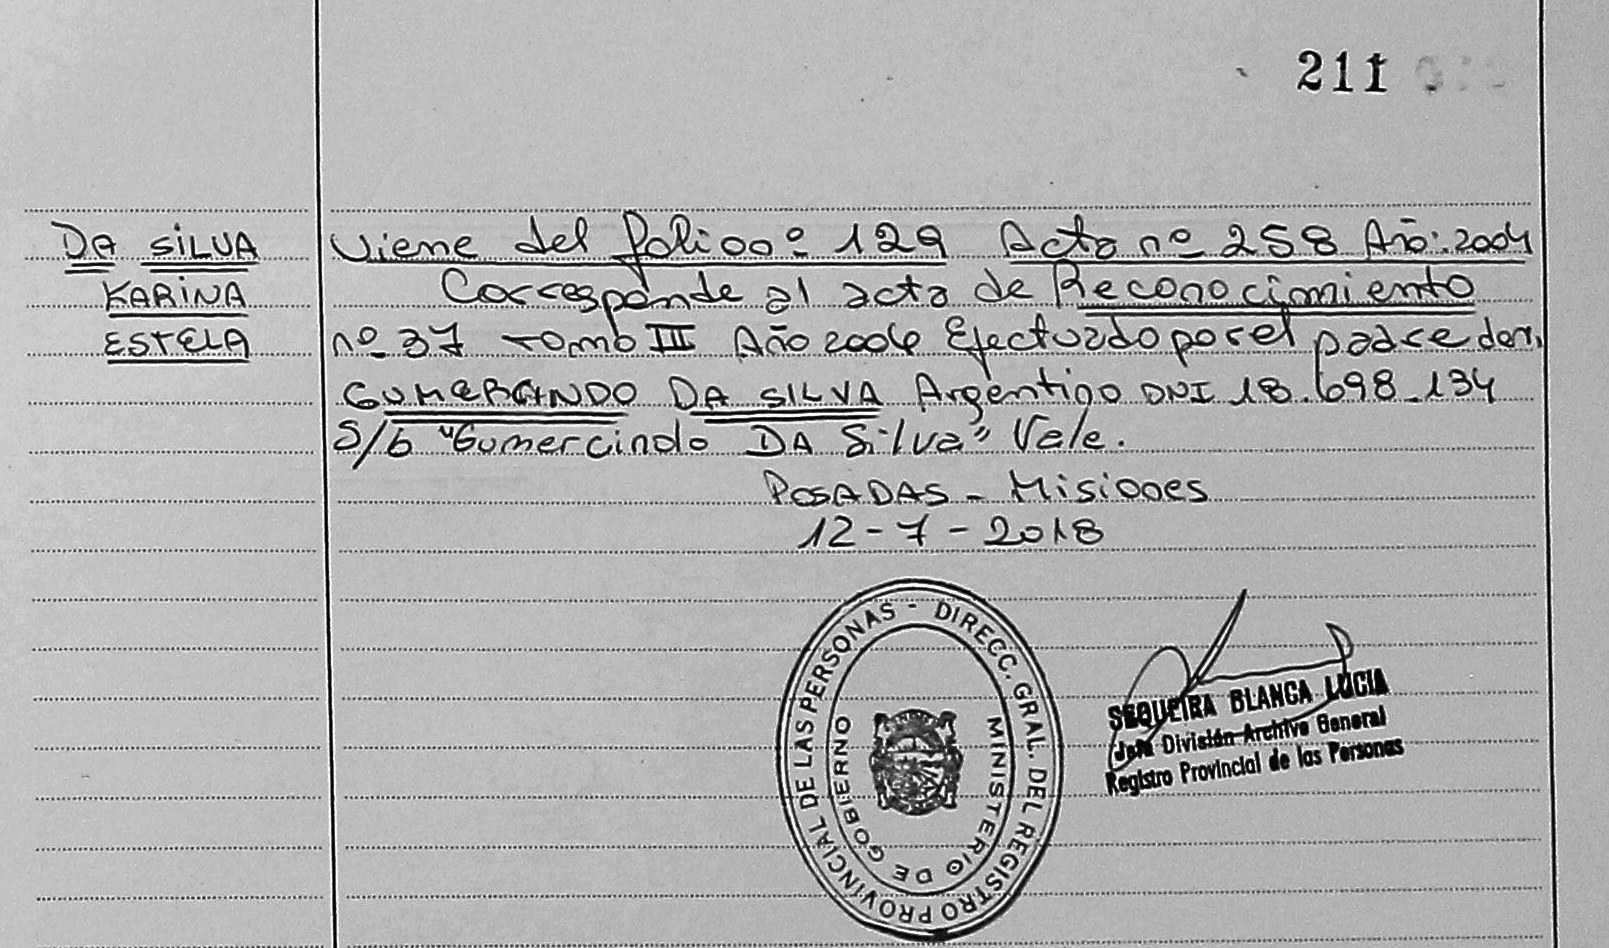 211
DA SILVA
KARINA
ESTELA
Viene del folio nº 129 Acta nº 258 Año: 2004
Corresponde al acta de Reconocimiento
nº 37 tomo III Año 2004 Efectuado por el padre den.
GUMERCINDO DA SILVA Argentino DNI 18.698.134
S/b "Gumercindo DA Silva" Vale.
POSADAS - Misiones
12-7-2018
DIRECC. GRAL. DEL REGISTRO PROVINCIAL DE LAS PERSONAS -
MINISTERIO DE GOBIERNO
SEQUEIRA BLANCA LUCIA
Jefa División Archivo General
Registro Provincial de las Personas